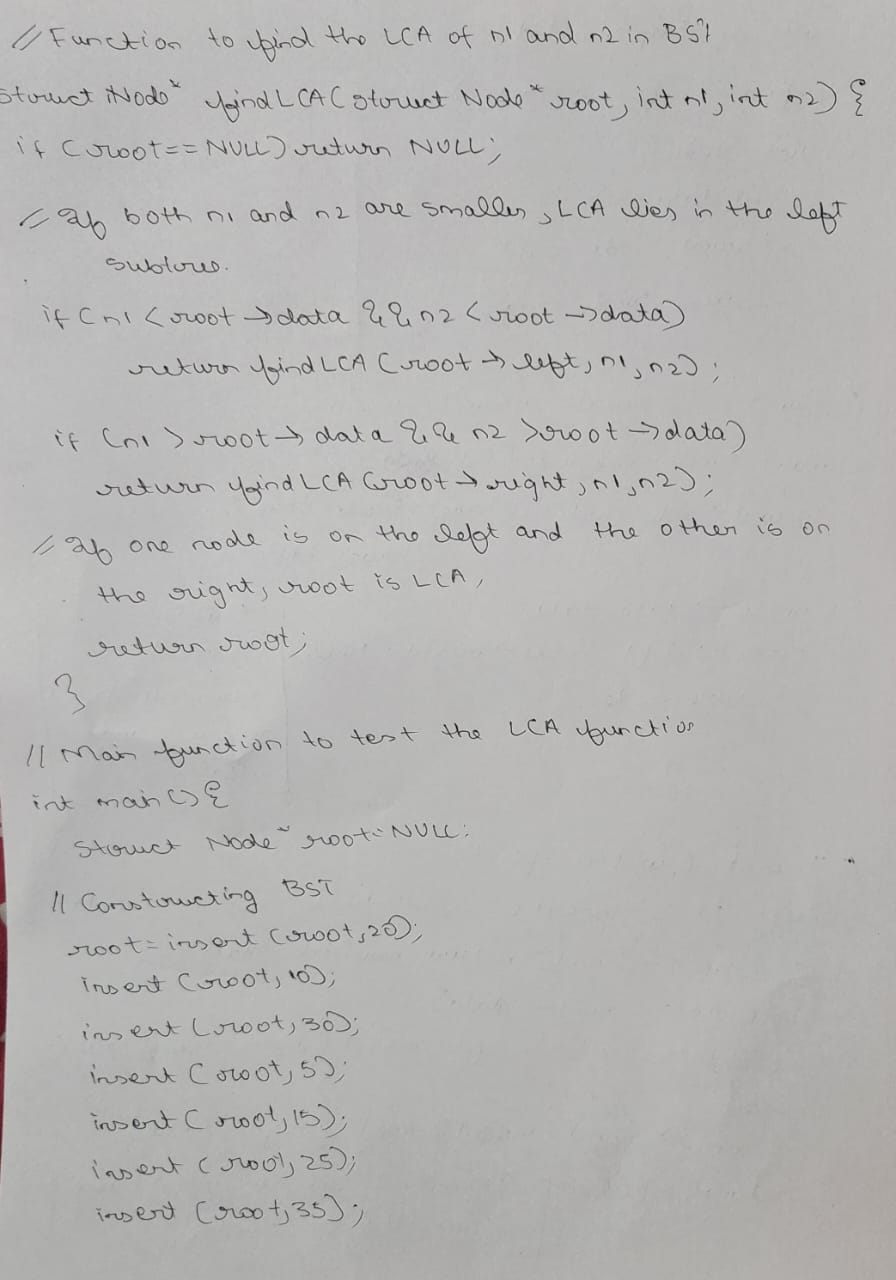 // Function to find the LCA of n1 and n2 in BST
struct Node* findLCA(struct Node* root, int n1, int n2) {
if (root == NULL) return NULL;
// If both n1 and n2 are smaller, LCA lies in the left
subtree.
if (n1 < root → data && n2 < root → data)
return findLCA (root → left, n1, n2);
if (n1 > root → data && n2 > root → data)
return findLCA (root → right, n1, n2);
// If one node is on the left and the other is on
the right, root is LCA,
return root;
}
// Main function to test the LCA function
int main() {
Struct Node* root = NULL;
// Constructing BST
root = insert (root, 20);
insert (root, 10);
insert (root, 30);
insert (root, 5);
insert (root, 15);
insert (root, 25);
insert (root, 35);